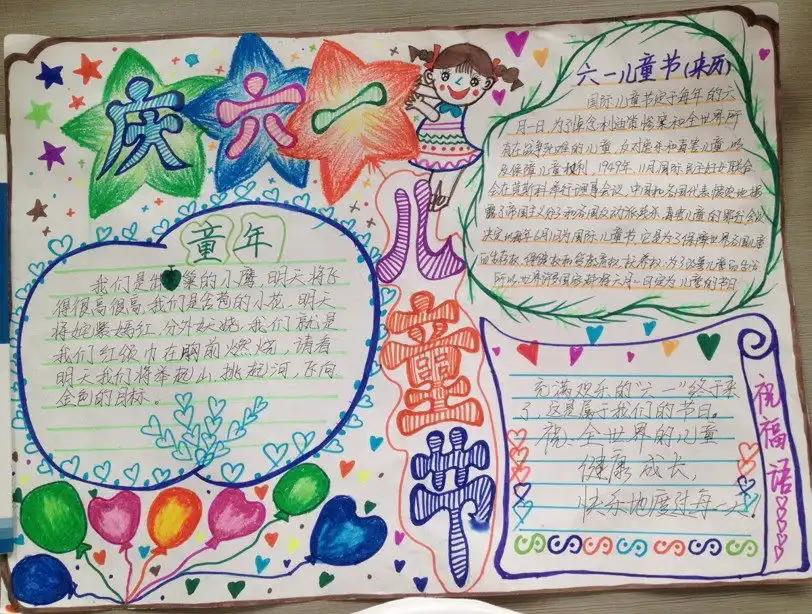 庆六一
儿童节
童年
我们是出巢的小鹰,明天将飞
得很高很高,我们是含苞的小花,明天
将姹紫嫣红,分外妖娆,我们就是
我们红领巾在胸前燃烧,请看
明天我们将举起山,挑起河,飞向
金色的目标。
六一儿童节(来历)
国际儿童节定于每年的六
月一日,为了悼念利迪策惨案和全世界所
有在战争死难的儿童,反对虐杀和毒害儿童,以
及保障儿童权利,1949年,11月国际民主妇女联合
会在莫斯科举行理事会议,中国和各国代表愤怒地揭
露了帝国主义分子和各国反动派
决定以每年6月1日为国际儿童节,它是为了保障世界各国儿童
的生存权、保健权和受教育权、抚养权,为了改善儿童的生活
所以,世界许国家都将六月一日定为儿童的节日
祝福语
充满欢乐的“六一”终于来
了,这是属于我们的节日。
祝:全世界的儿童
健康成长,
快乐地度过每一天!